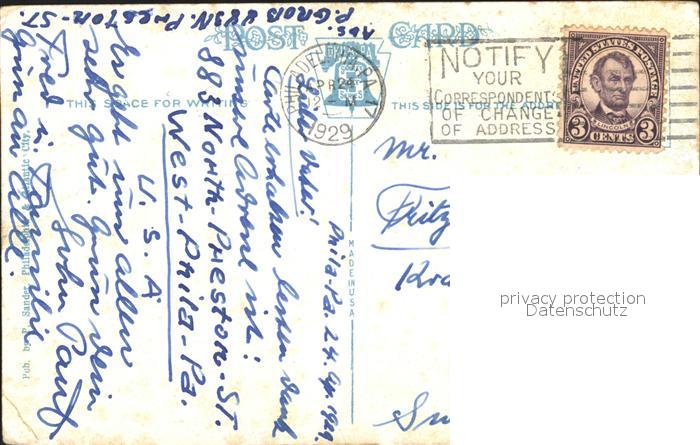 Abs.
P. GROB 883 N. PRESTON-ST.
POST CARD
THIS SPACE FOR WRITING
THIS SIDE IS FOR THE ADDRESS
PHILADELPHIA, PA. 17
APR 24
M
1929
NOTIFY
YOUR
CORRESPONDENTS
OF CHANGE
OF ADDRESS
UNITED STATES POSTAGE
LINCOLN
3 CENTS 3
Phila-Pa. 24. Apr. 1929.
Lieber Vater!
Karte erhalten besten Dank
meine Adresse ist:
883 North-Preston-St.
West-Phila-Pa.
U. S. A
Es geht uns allen
sehr gut. Gruss dein
Sohn Paul
Fred u. Familie
Gruss an Alle.
MADE IN USA
Pub. by P. Sander, Philadelphia & Atlantic City.
Mr.
Fritz
privacy protection
Datenschutz